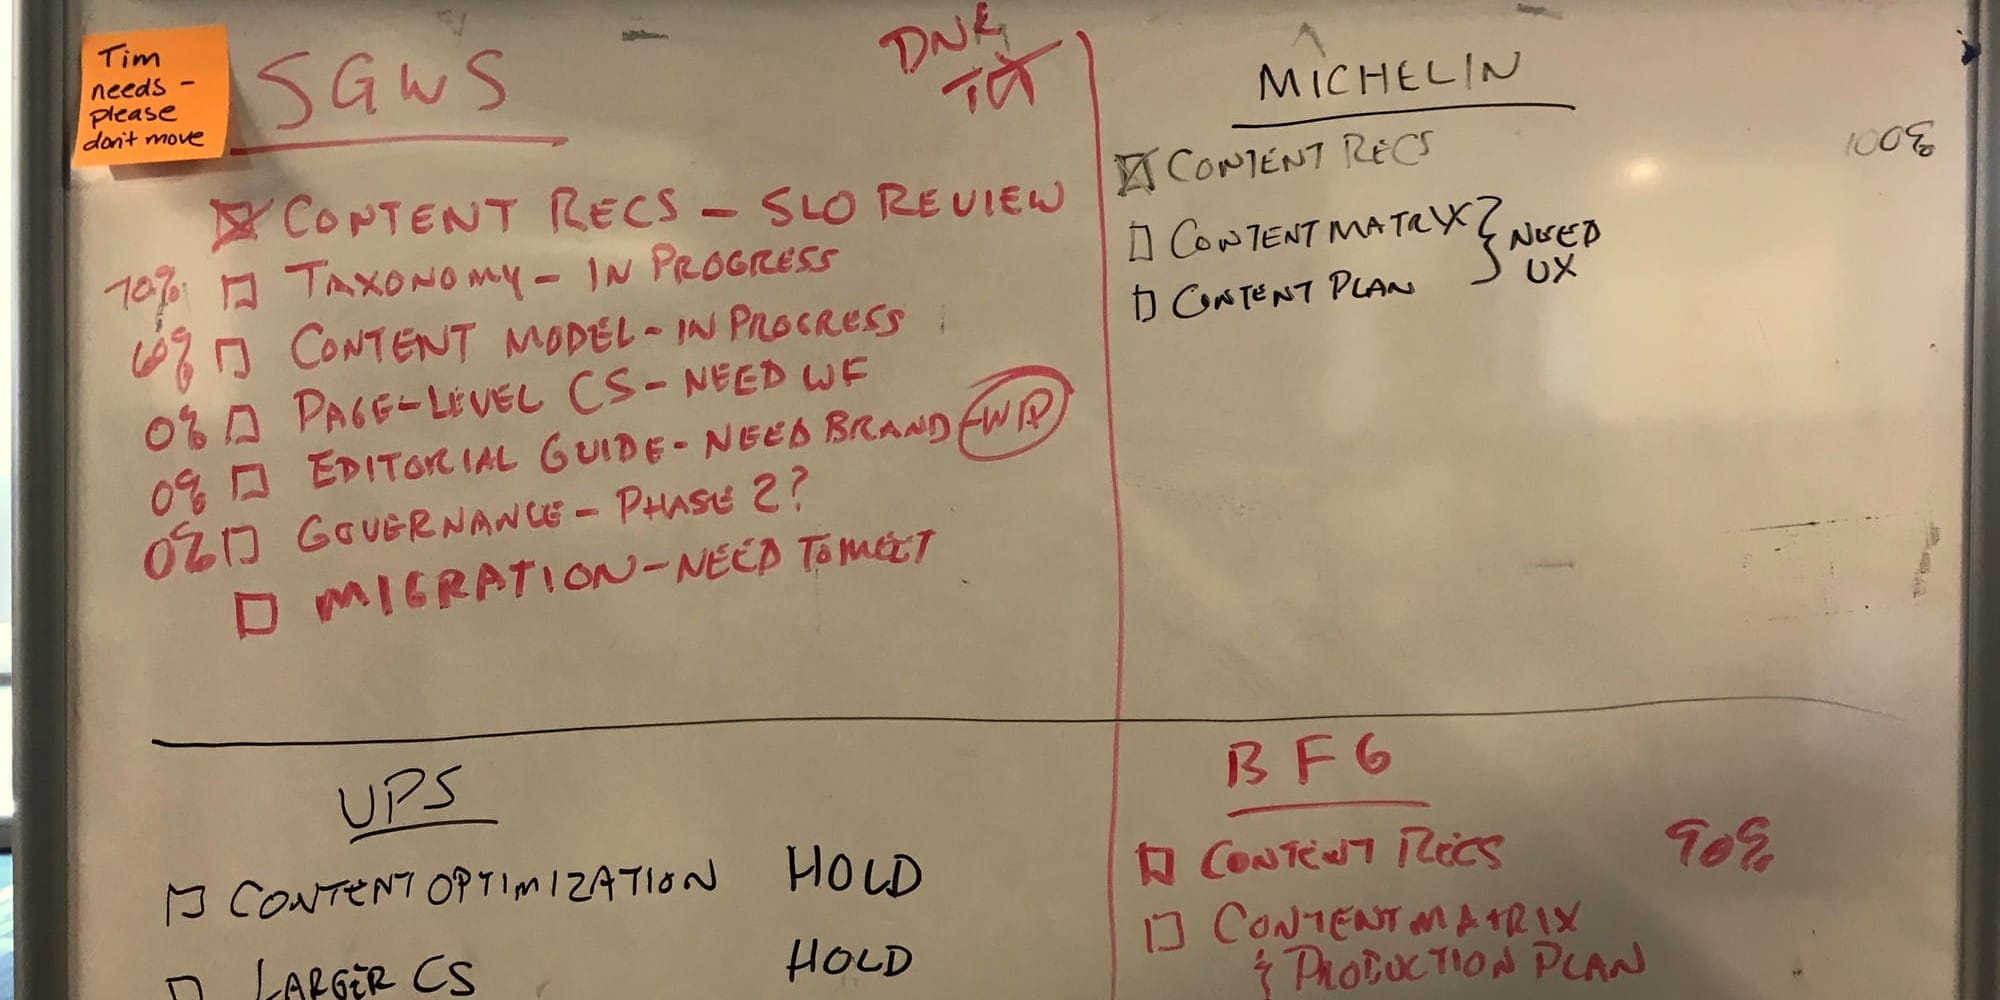 Tim
needs -
please
don't move
SGWS
DNE
CONTENT RECS - SLO REVIEW
70% TAXONOMY - IN PROGRESS
60% CONTENT MODEL - IN PROGRESS
0% PAGE-LEVEL CS - NEED WF
0% EDITORIAL GUIDE - NEED BRAND - WIP
0% GOVERNANCE - PHASE 2?
MIGRATION - NEED TO MEET
MICHELIN
CONTENT RECS 100%
CONTENT MATRIX } NEED
CONTENT PLAN UX
UPS
CONTENT OPTIMIZATION HOLD
LARGER CS HOLD
BFG
CONTENT RECS 90%
CONTENT MATRIX
& PRODUCTION PLAN